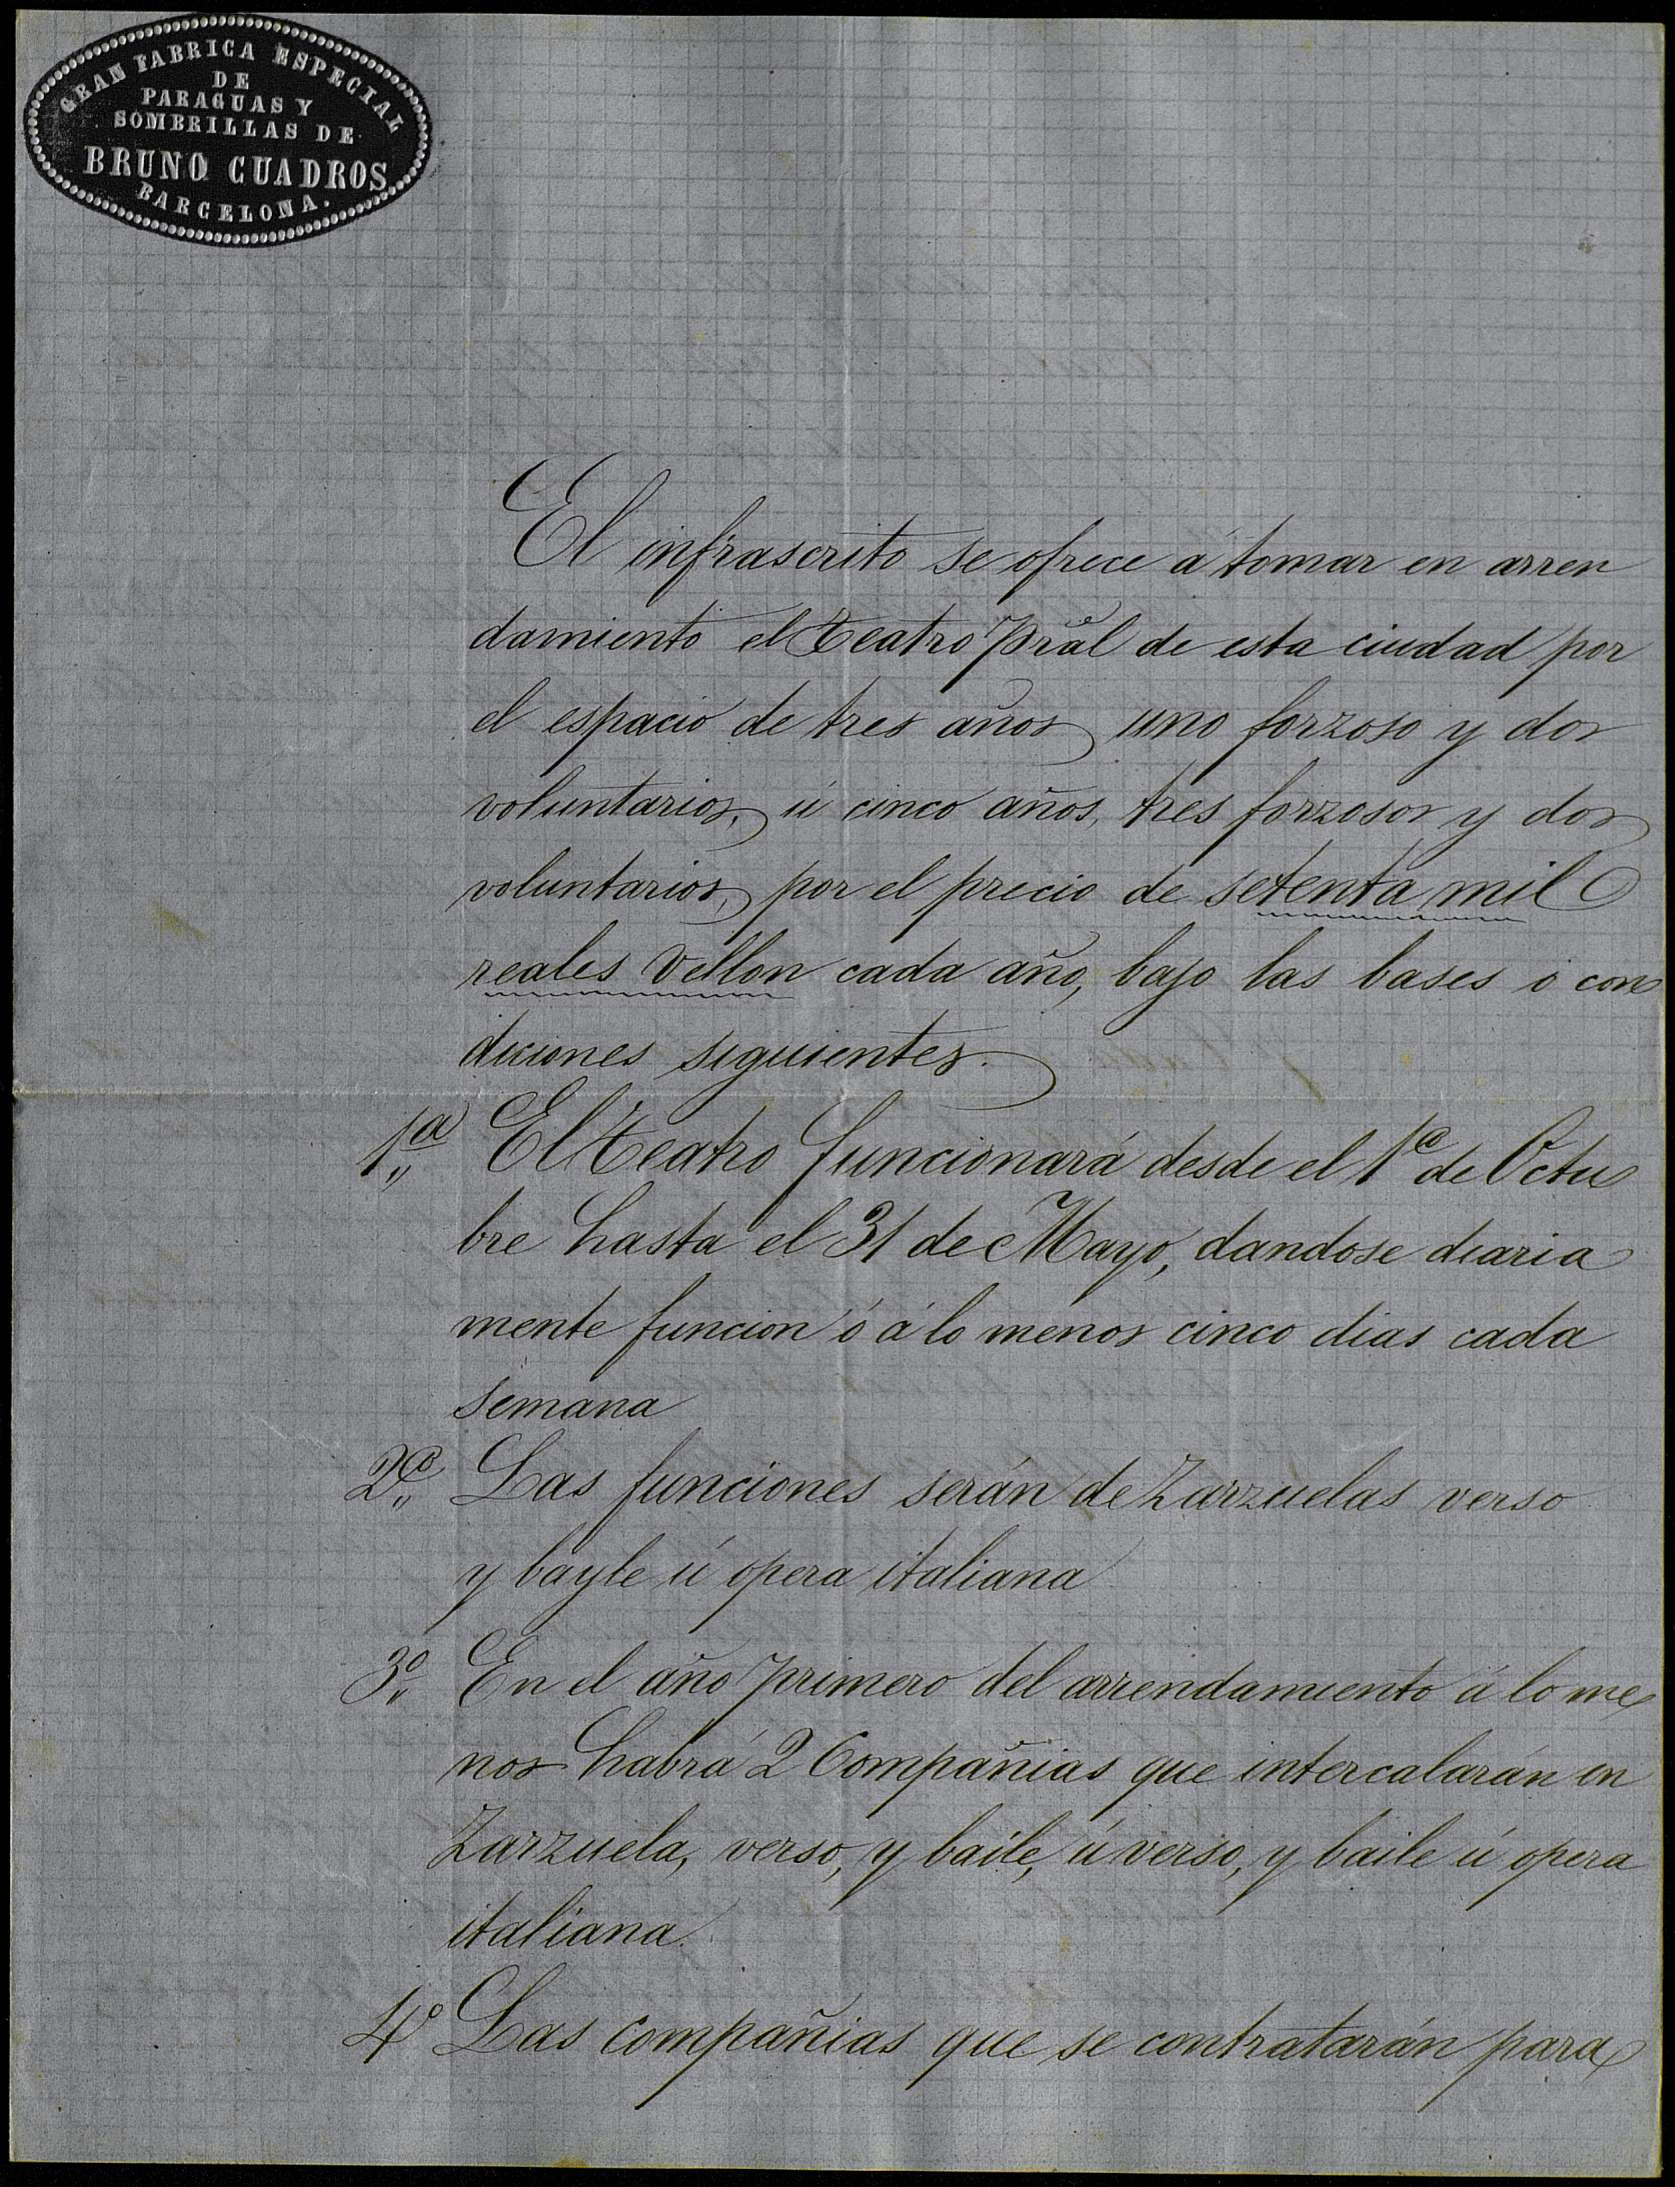 GRAN FABRICA ESPECIAL
DE
PARAGUAS Y
SOMBRILLAS DE
BRUNO CUADROS
BARCELONA.
El infrascrito se ofrece á tomar en arren
damiento el teatro Pral de esta ciudad por
el espacio de tres años uno forzoso y dos
voluntarios, ú cinco años, tres forzosos y dos
voluntarios, por el precio de setenta mil
reales vellon cada año, bajo las bases ó con
diciones siguientes.
1ª El teatro funcionará desde el 1º de Octu
bre hasta el 31 de Mayo, dandose diaria
mente funcion ó á lo menos cinco dias cada
semana
2ª Las funciones serán de Zarzuelas verso
y bayle ú opera italiana
3º En el año primero del arrendamiento á lo me
nos habrá 2 Compañias que intercalarán en
Zarzuela, verso, y baile, ú verso, y baile ú opera
italiana.
4º Las compañias que se contratarán para